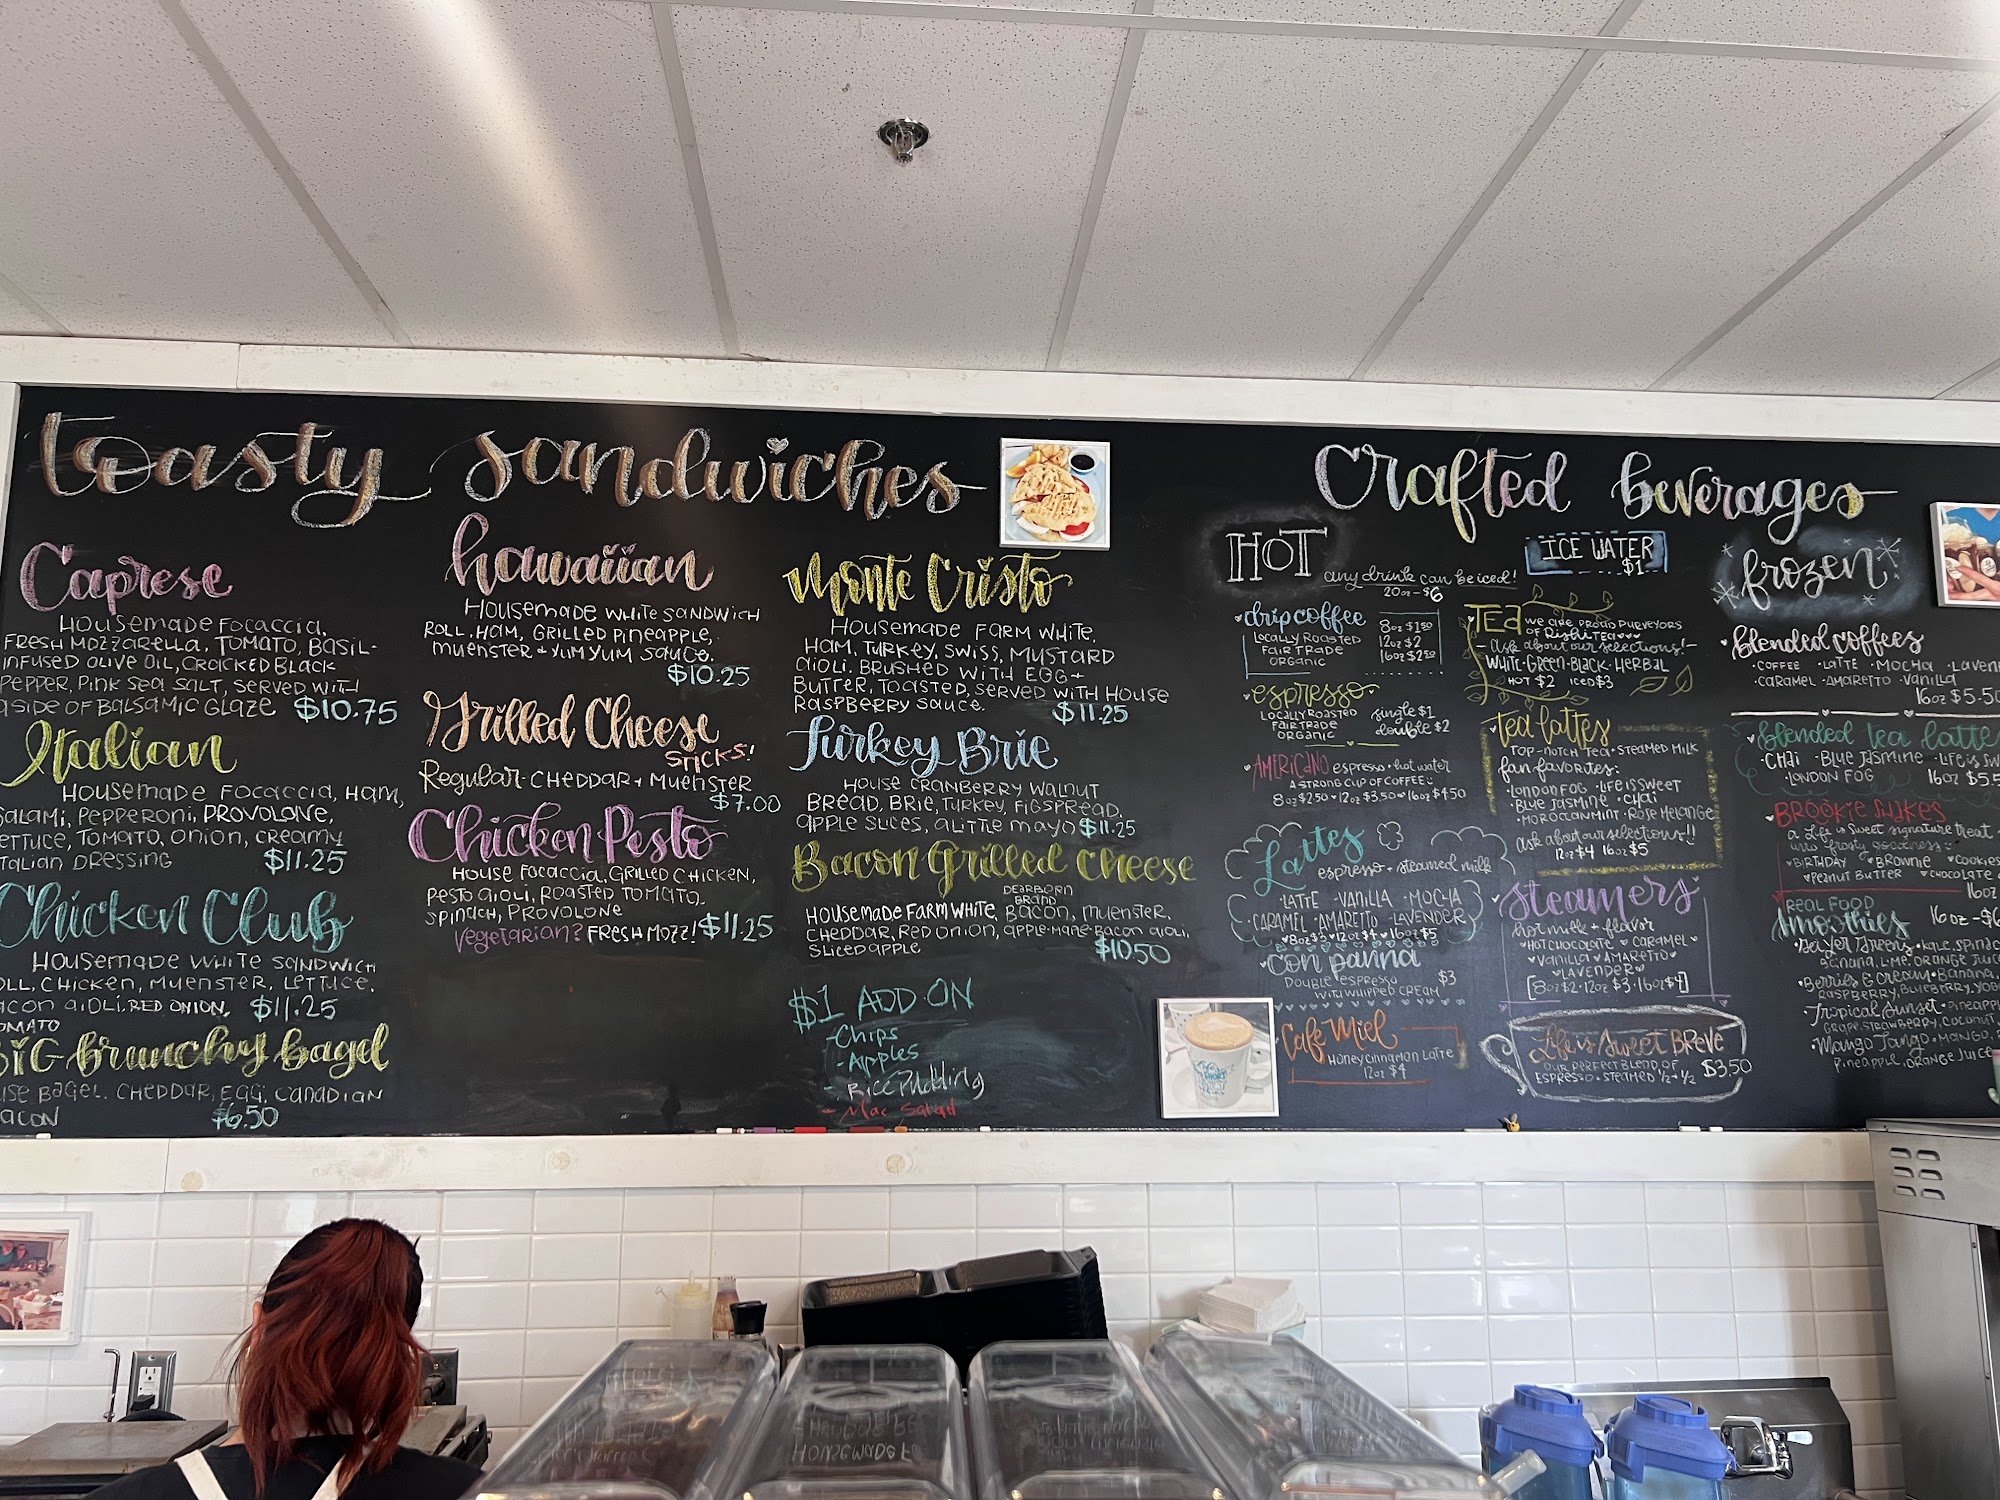 toasty sandwiches
Caprese
Housemade Focaccia,
Fresh Mozzarella, Tomato, Basil-
infused olive oil, cracked Black
Pepper, Pink Sea Salt, served with
a side of Balsamic Glaze $10.75
Italian
Housemade Focaccia, Ham,
Salami, Pepperoni, Provolone,
Lettuce, Tomato, Onion, Creamy
Italian Dressing $11.25
Chicken Club
Housemade White Sandwich
Roll, Chicken, Muenster, Lettuce,
Bacon aioli, Red Onion, $11.25
Tomato
BiG Brunchy Bagel
Bagel, Cheddar, Egg, Canadian
Bacon $6.50
hawaiian
Housemade White Sandwich
Roll, Ham, Grilled Pineapple,
Muenster + Yum Yum Sauce.
$10.25
Grilled Cheese
Sticks!
Regular- Cheddar + Muenster
$7.00
Chicken Pesto
House Focaccia, Grilled Chicken,
Pesto aioli, Roasted Tomato,
Spinach, Provolone
Vegetarian? Fresh Mozz! $11.25
Monte Cristo
Housemade Farm White,
Ham, Turkey, Swiss, Mustard
aioli. Brushed with egg +
Butter, Toasted, served with House
Raspberry Sauce. $11.25
Turkey Brie
House Cranberry Walnut
Bread, Brie, Turkey, Fig Spread,
apple slices, a little mayo $11.25
Bacon Grilled Cheese
Dearborn
Brand
Housemade Farm White, Bacon, Muenster,
Cheddar, Red Onion, apple-Maple-Bacon aioli,
Sliced apple $10.50
$1 ADD ON
- Chips
- Apples
- Rice Pudding
- Mac Salad
Crafted beverages
HOT
any drink can be iced!
20oz - $6
ICE WATER
$1
drip coffee
Locally Roasted
Fair Trade
Organic
8oz $1.50
12oz $2
16oz $2.50
espresso
Locally Roasted
Fair Trade
Organic
single $1
double $2
AMERICANO espresso + hot water
A strong cup of coffee
8oz $2.50 • 12oz $3.50 • 16oz $4.50
Lattes
espresso + steamed milk
· Latte · Vanilla · Mocha
Caramel · Amaretto · Lavender
8oz $3 12oz $4 16oz $5
con panna
Double espresso
with whipped cream $3
Cafe Miel
Honey Cinnamon Latte
12oz $4
TEA
We are proud purveyors
of Rishi Tea
- ask about our selections! -
White · Green · Black · Herbal
Hot $2 Iced $3
tea lattes
Top-notch tea + steamed milk
fan favorites:
· London Fog · Life is Sweet
· Blue Jasmine · Chai
· Moroccan Mint · Rose Melange
ask about our selections!!
12oz $4 16oz $5
steamers
hot milk + flavor
Hot Chocolate Caramel
Vanilla Amaretto
Lavender
[8oz $2 · 12oz $3 · 16oz $4]
Life is Sweet BREVE
Our perfect blend of
Espresso + steamed 1/2 + 1/2 $3.50
frozen
blended coffees
· Coffee · Latte · Mocha
· Caramel · Amaretto · Vanilla
16oz $5.50
blended tea lattes
· Chai · Blue Jasmine
· London Fog 16oz $5.5
BROOKIE SHAKES
a Life is Sweet signature treat
into frosty goodness:
Birthday Brownie Cookies
Peanut Butter Chocolate
16oz
REAL FOOD
Smoothies 16oz - $6
· Kale,
Banana, Lime, Orange Juice
· Berries & Cream · Banana,
Raspberry, Blueberry,
· Tropical Sunset · Pineapple,
Grape, Strawberry, Coconut
· Mango Tango · Mango,
Pineapple, Orange Juice